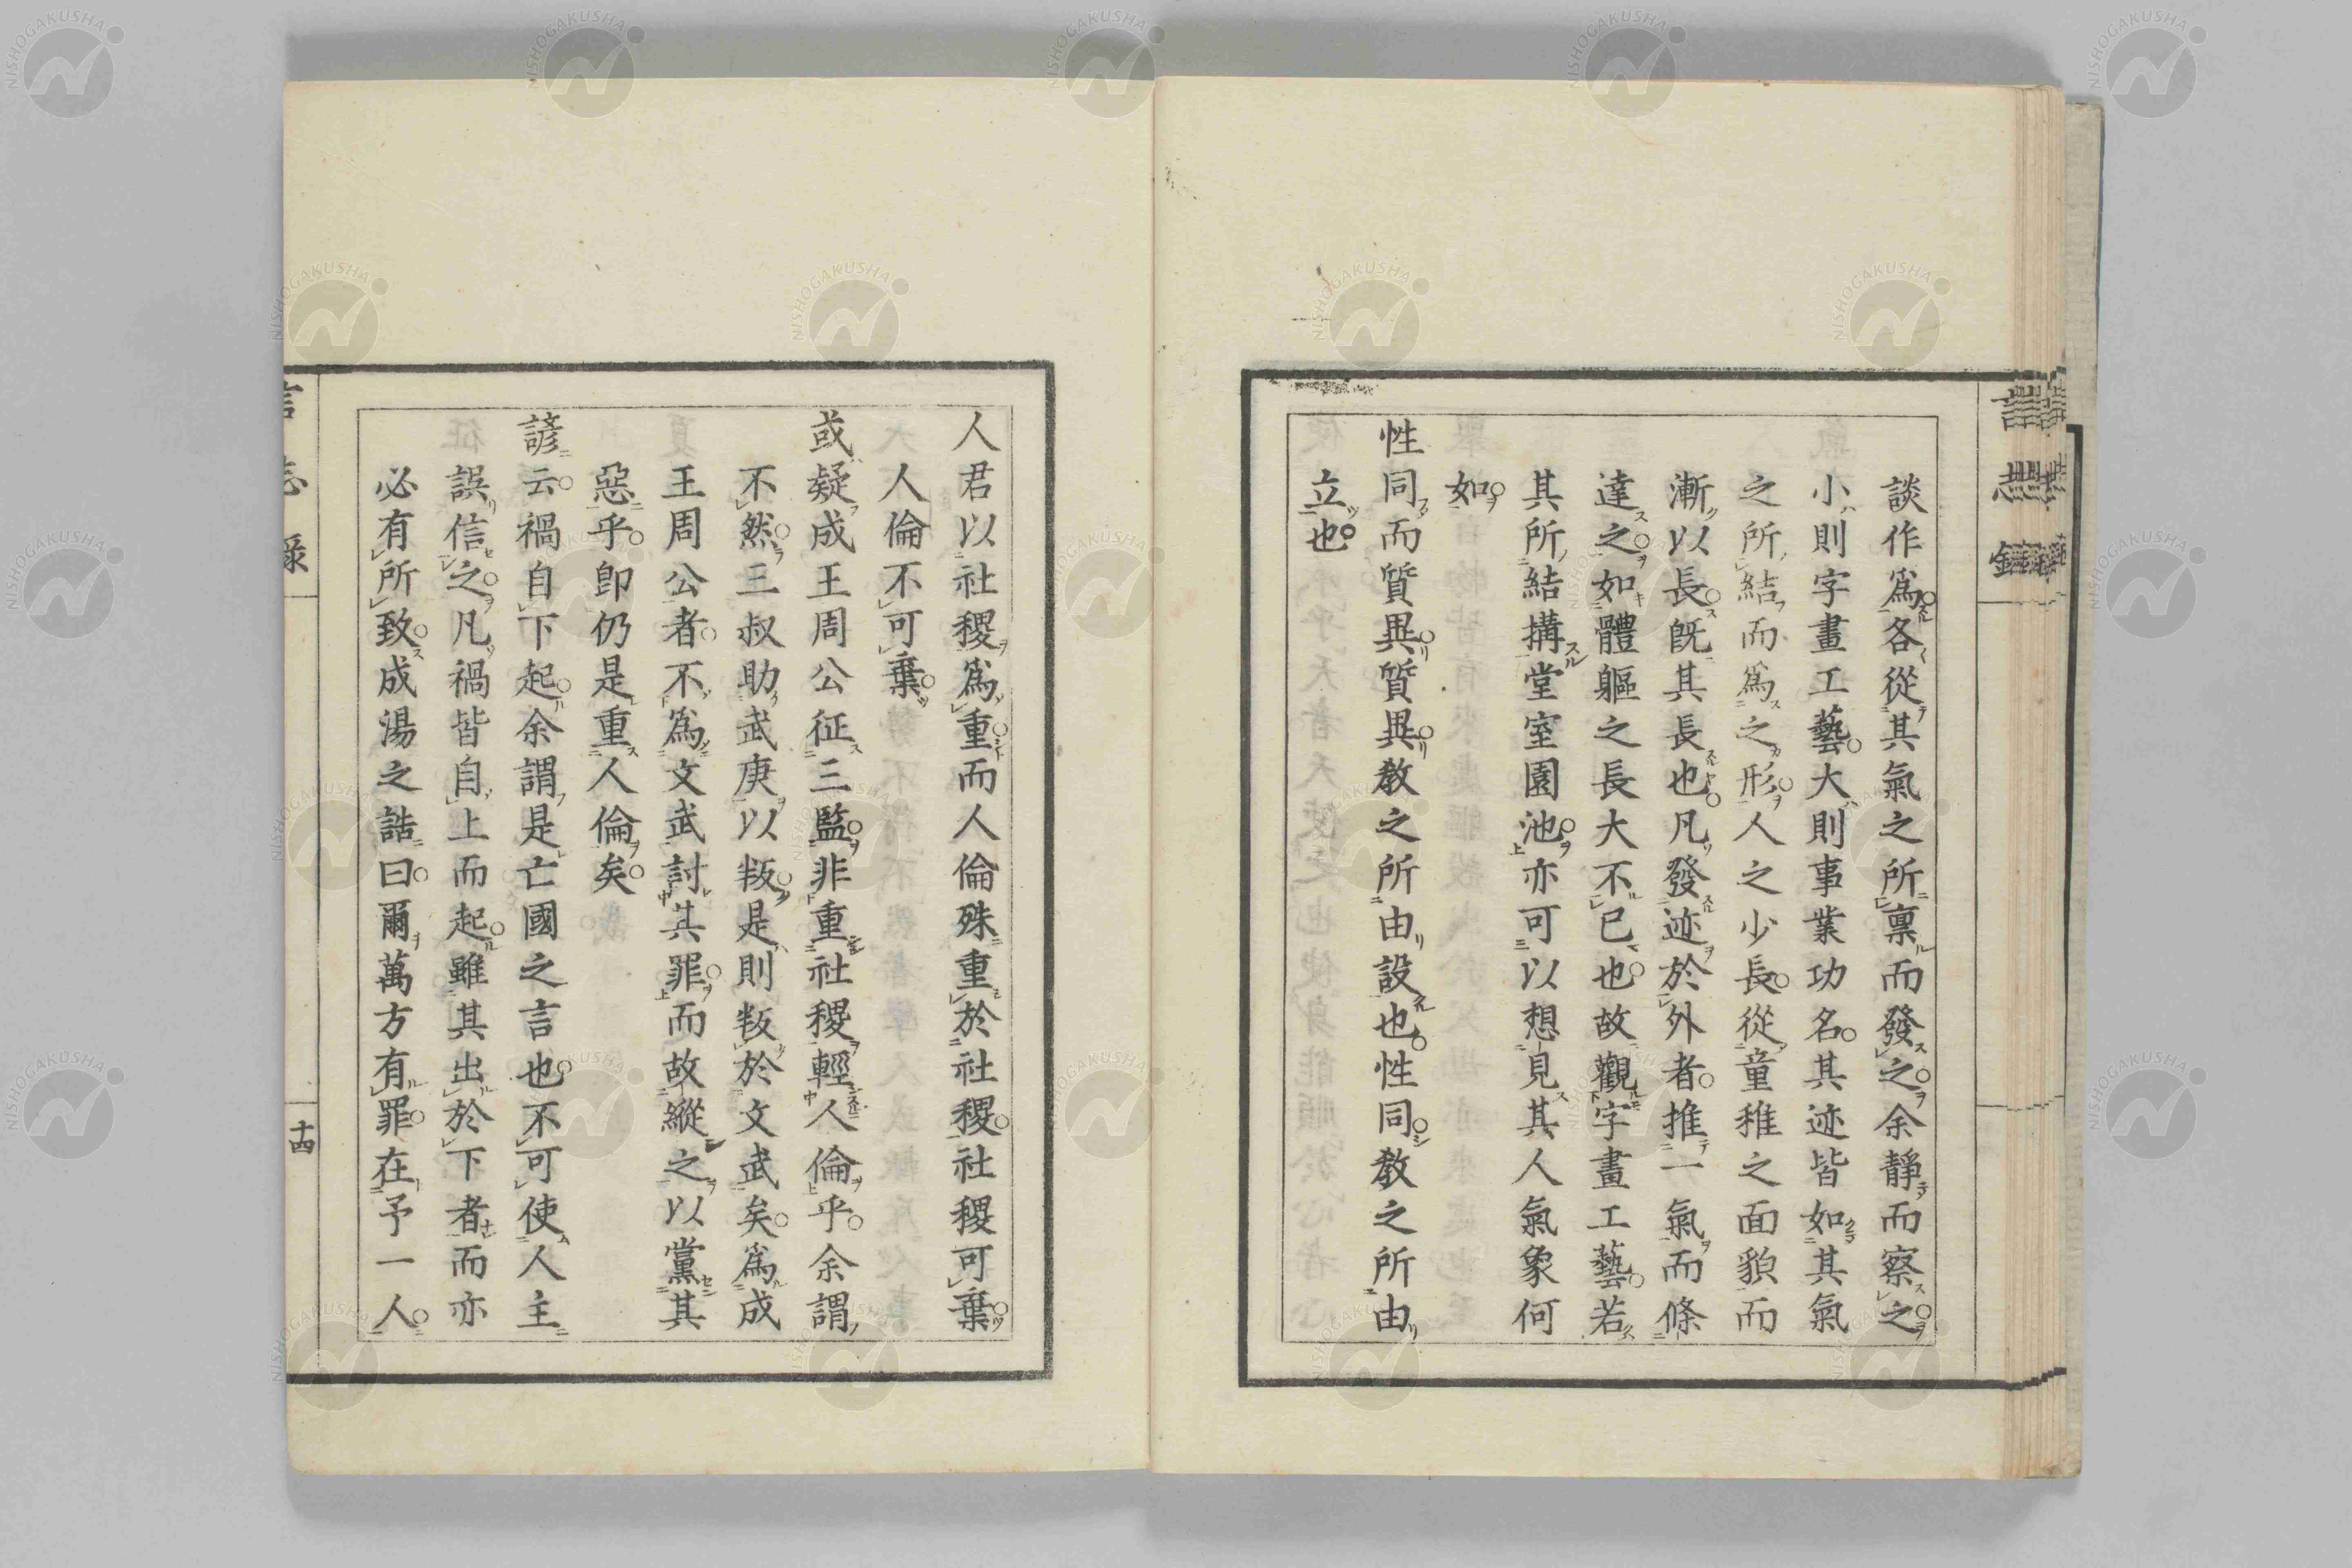 言志錄
談作爲各從其氣之所稟而發之余靜而察之
小則字畫工藝大則事業功名其迹皆如其氣
之所結而爲之形人之少長從童稚之面貌而
漸以長旣其長也凡發迹於外者推一氣而條
達之如體軀之長大不已也故觀字畫工藝若
其所結搆堂室園池亦可以想見其人氣象何
如
性同而質異質異敎之所由設也性同敎之所由
立也
人君以社稷爲重而人倫殊重於社稷社稷可棄
人倫不可棄
或疑成王周公征三監非重社稷輕人倫乎余謂
不然三叔助武庚以叛是則叛於文武矣爲成
王周公者不爲文武討其罪而故縱之以黨其
惡乎卽仍是重人倫矣
諺云禍自下起余謂是亡國之言也不可使人主
誤信之凡禍皆自上而起雖其出於下者而亦
必有所致成湯之誥曰爾萬方有罪在予一人
言志錄
十四
NISHOGAKUSHA